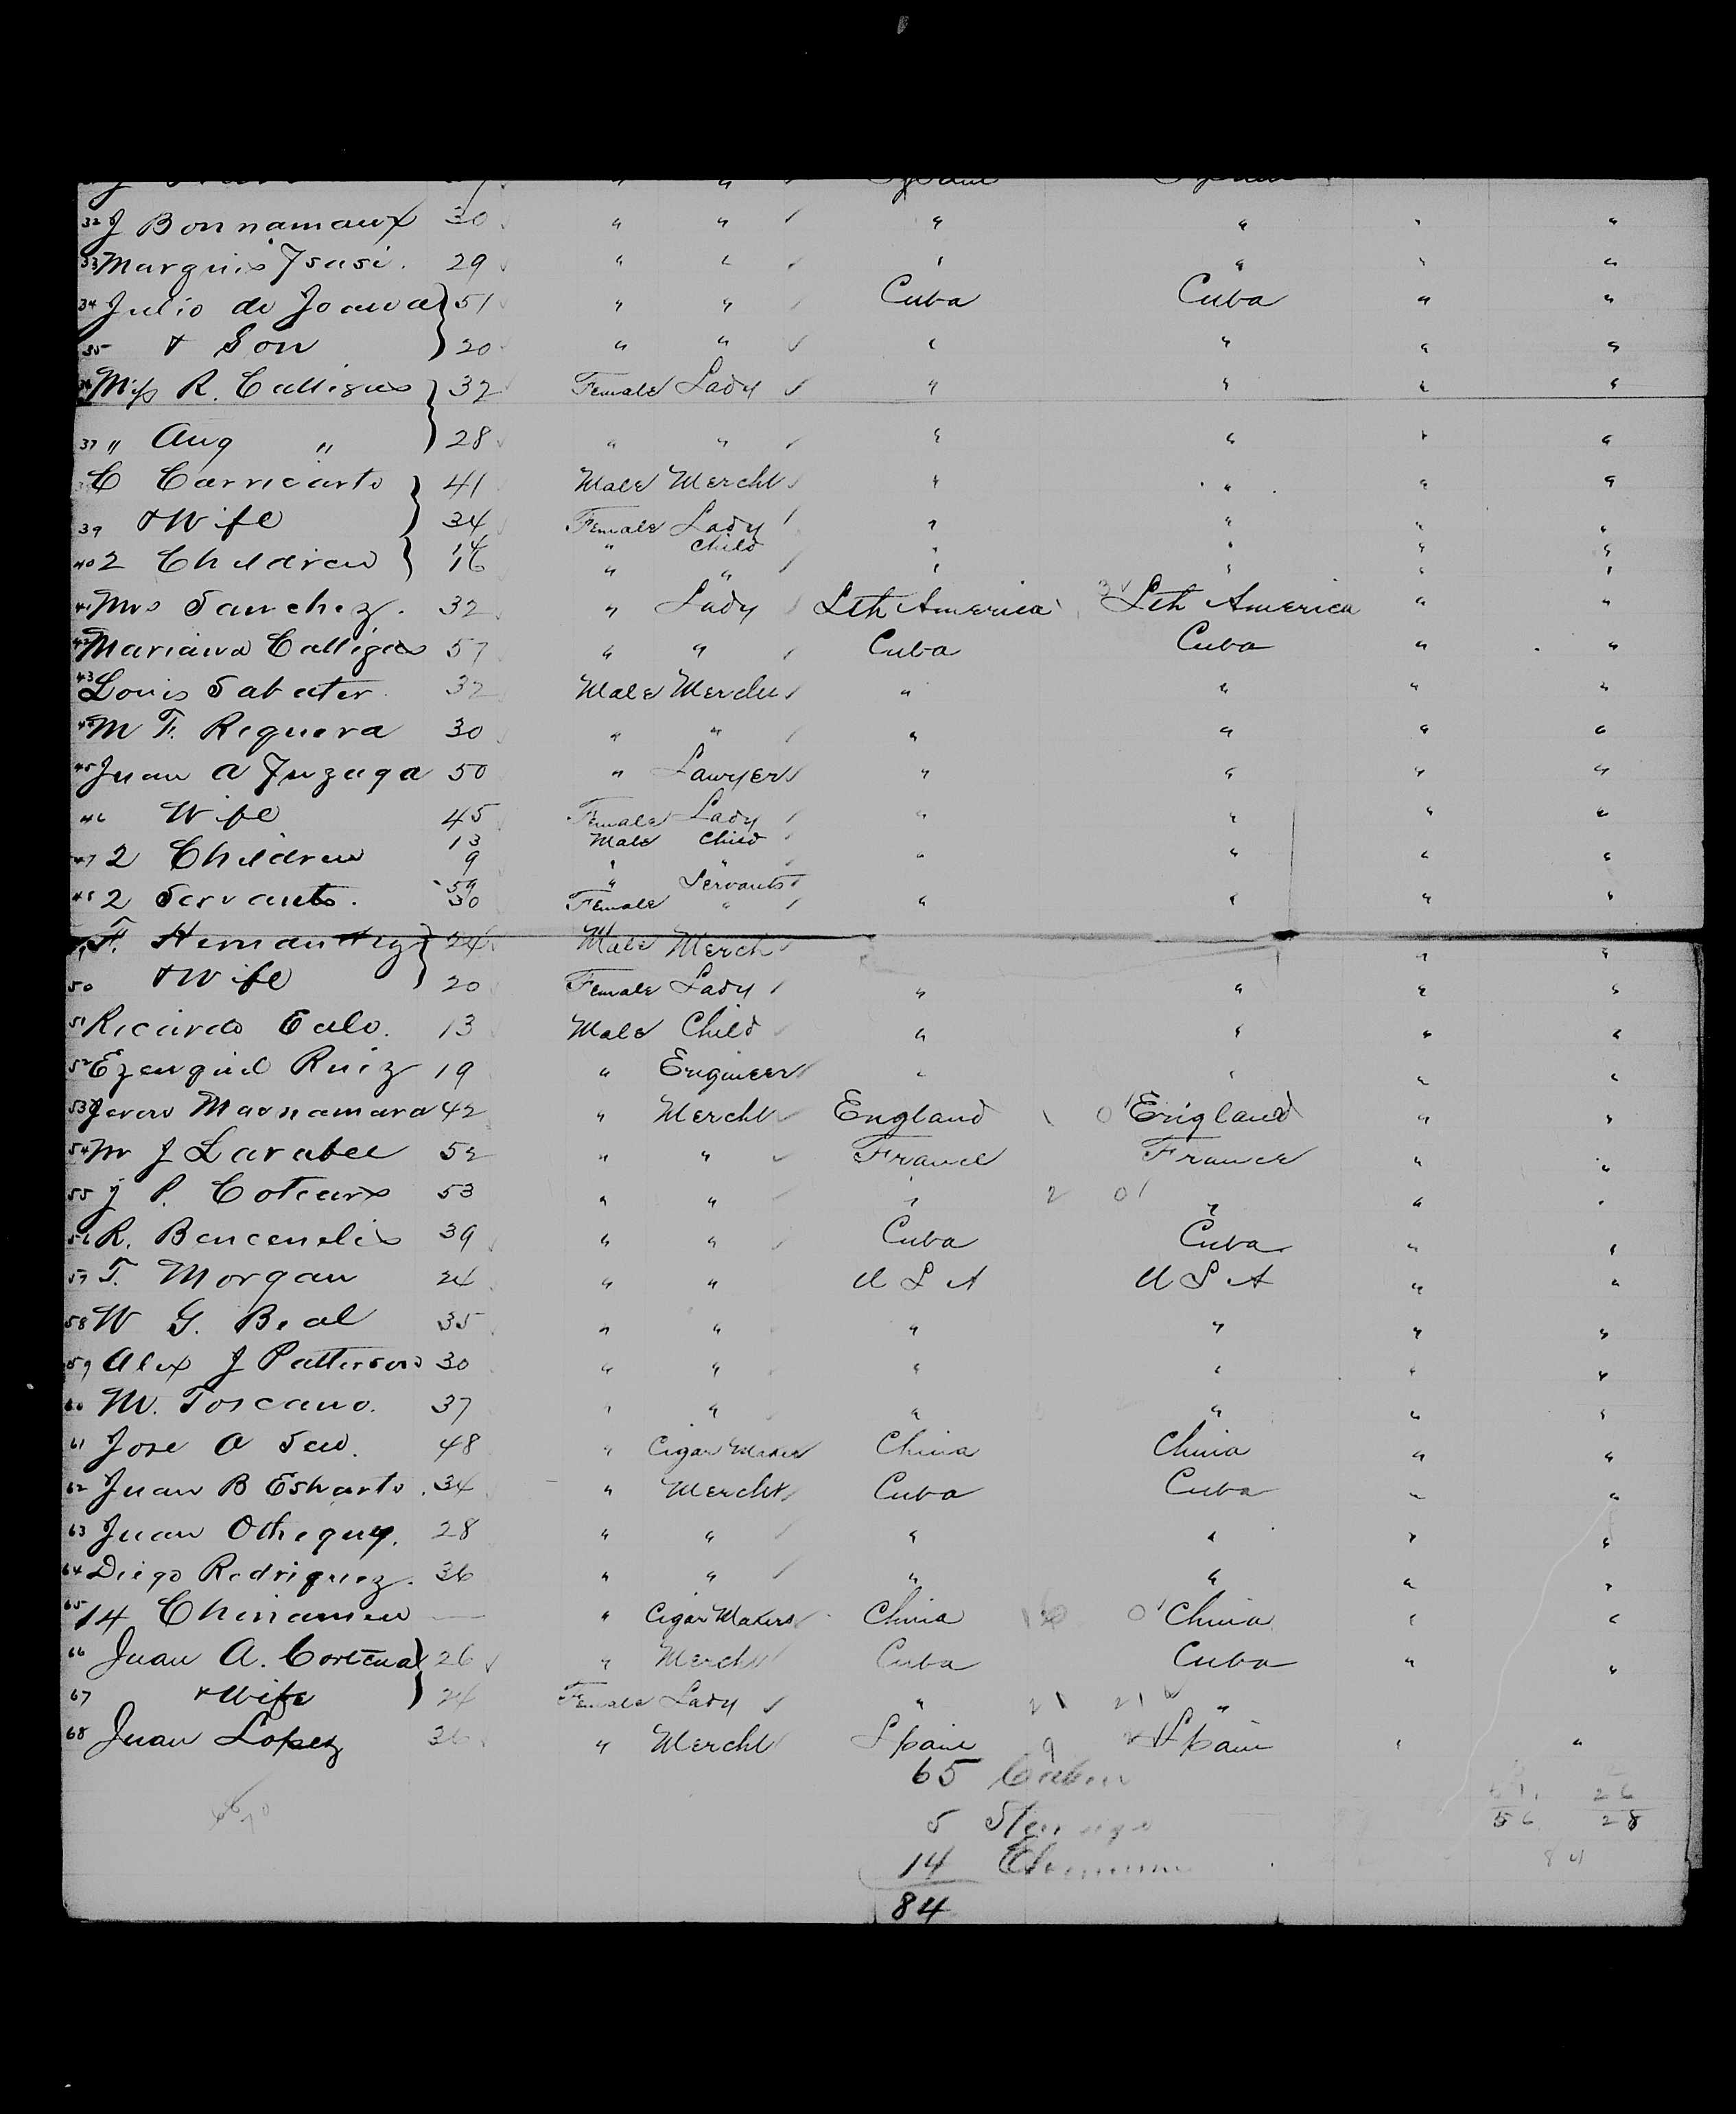 32 J Bonnamaux 30 " " " " " "
33 Marquis Isasi. 29 " " " " " "
34 Julio de Joana 51 " " Cuba Cuba " "
35 & Son 20 " " " " " "
Miss R. Calligus 32 Female Lady " " " "
37 " Aug " 28 " " " " " "
C Carricarto 41 Male Mercht " " " "
39 & Wife 34 Female Lady " " " "
14 " Child " " " "
40 2 Children 16 " " " " " "
41 Mrs Sanchez. 32 " Lady Sth America Sth America " "
42 Mariana Calligas 57 " " Cuba Cuba " "
43 Louis Sabater. 32 Male Merch " " " "
44 M F. Requera 30 " " " " " "
45 Juan A Fuzaga 50 " Lawyer " " " "
46 Wife 45 Female Lady " " " "
13 Male Child
47 2 Children 9 " " " " " "
59 " Servants
48 2 Servants. 30 Female " " " " "
F. Hernandez 24 Male Merch " "
50 & Wife 20 Female Lady " " " "
51 Ricardo Calo. 13 Male Child " " " "
52 Ezenquiel Ruiz 19 " Engineer " " " "
53 Macnamara 42 " Mercht England England " "
54 M J Larabee 52 " " France France " "
55 J P. Coteaux 53 " " " 2 01 " " "
56 R. Bencenelis 39 " " Cuba Cuba " "
57 T. Morgan 24 " " U S A U S A " "
58 W G. Beal 35 " " " " " "
59 Alex J Patterson 30 " " " " " "
60 M. Toscano. 37 " " " " " "
61 Jose A Seu. 48 " Cigar Maker China China " "
62 Juan B Esharto. 34 " Mercht Cuba Cuba " "
63 Juan Otheguy. 28 " " " " " "
64 Diego Rodriguez. 36 " " " " " "
65 14 Chinamen — " Cigar Makers China China " "
66 Juan A. Cortina 26 " Mercht Cuba Cuba " "
67 & Wife 24 Female Lady " 21 21 "
68 Juan Lopez 36 " Mercht Spain 9 Spain " "
65 Cabin
5 Steerage
56 28
14 Chinamen
84
84